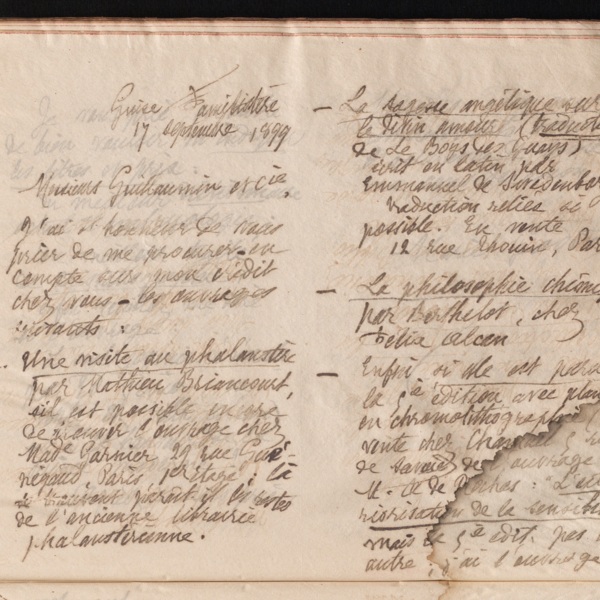 Guise Familistère
17 septembre 1899
Messieurs Guillaumin et Cie,
J'ai l'honneur de vous
prier de me procurer en
compte sur mon crédit
chez vous – les ouvrages
suivants :
Une visite au phalanstère
par Mathieu Briancourt,
s'il est possible encore
de trouver l'ouvrage chez
Made Parnier 29 rue Gué-
négaud, Paris 1er étage ; là
se trouvent paraît-il les restes
de l'ancienne librairie
phalanstérienne.
– La sagesse angélique sur
le divin amour (traduct
de Le Boys des Guays)
écrit en latin par
Emmanuel de Swedenbor
traduction reliée si
possible. En vente
12 rue Thouin, Par
– La philosophie chimi
par Berthelot, chez
Félix Alcan
– Enfin si elle est paru
la 5e édition avec plan
en chromolithographie
vente chez
de ouvrage
M. A. de Rochas : L'
riorisation de la sensibil
mais la 5e édit. pas
autre ; j'ai l'ouvrage